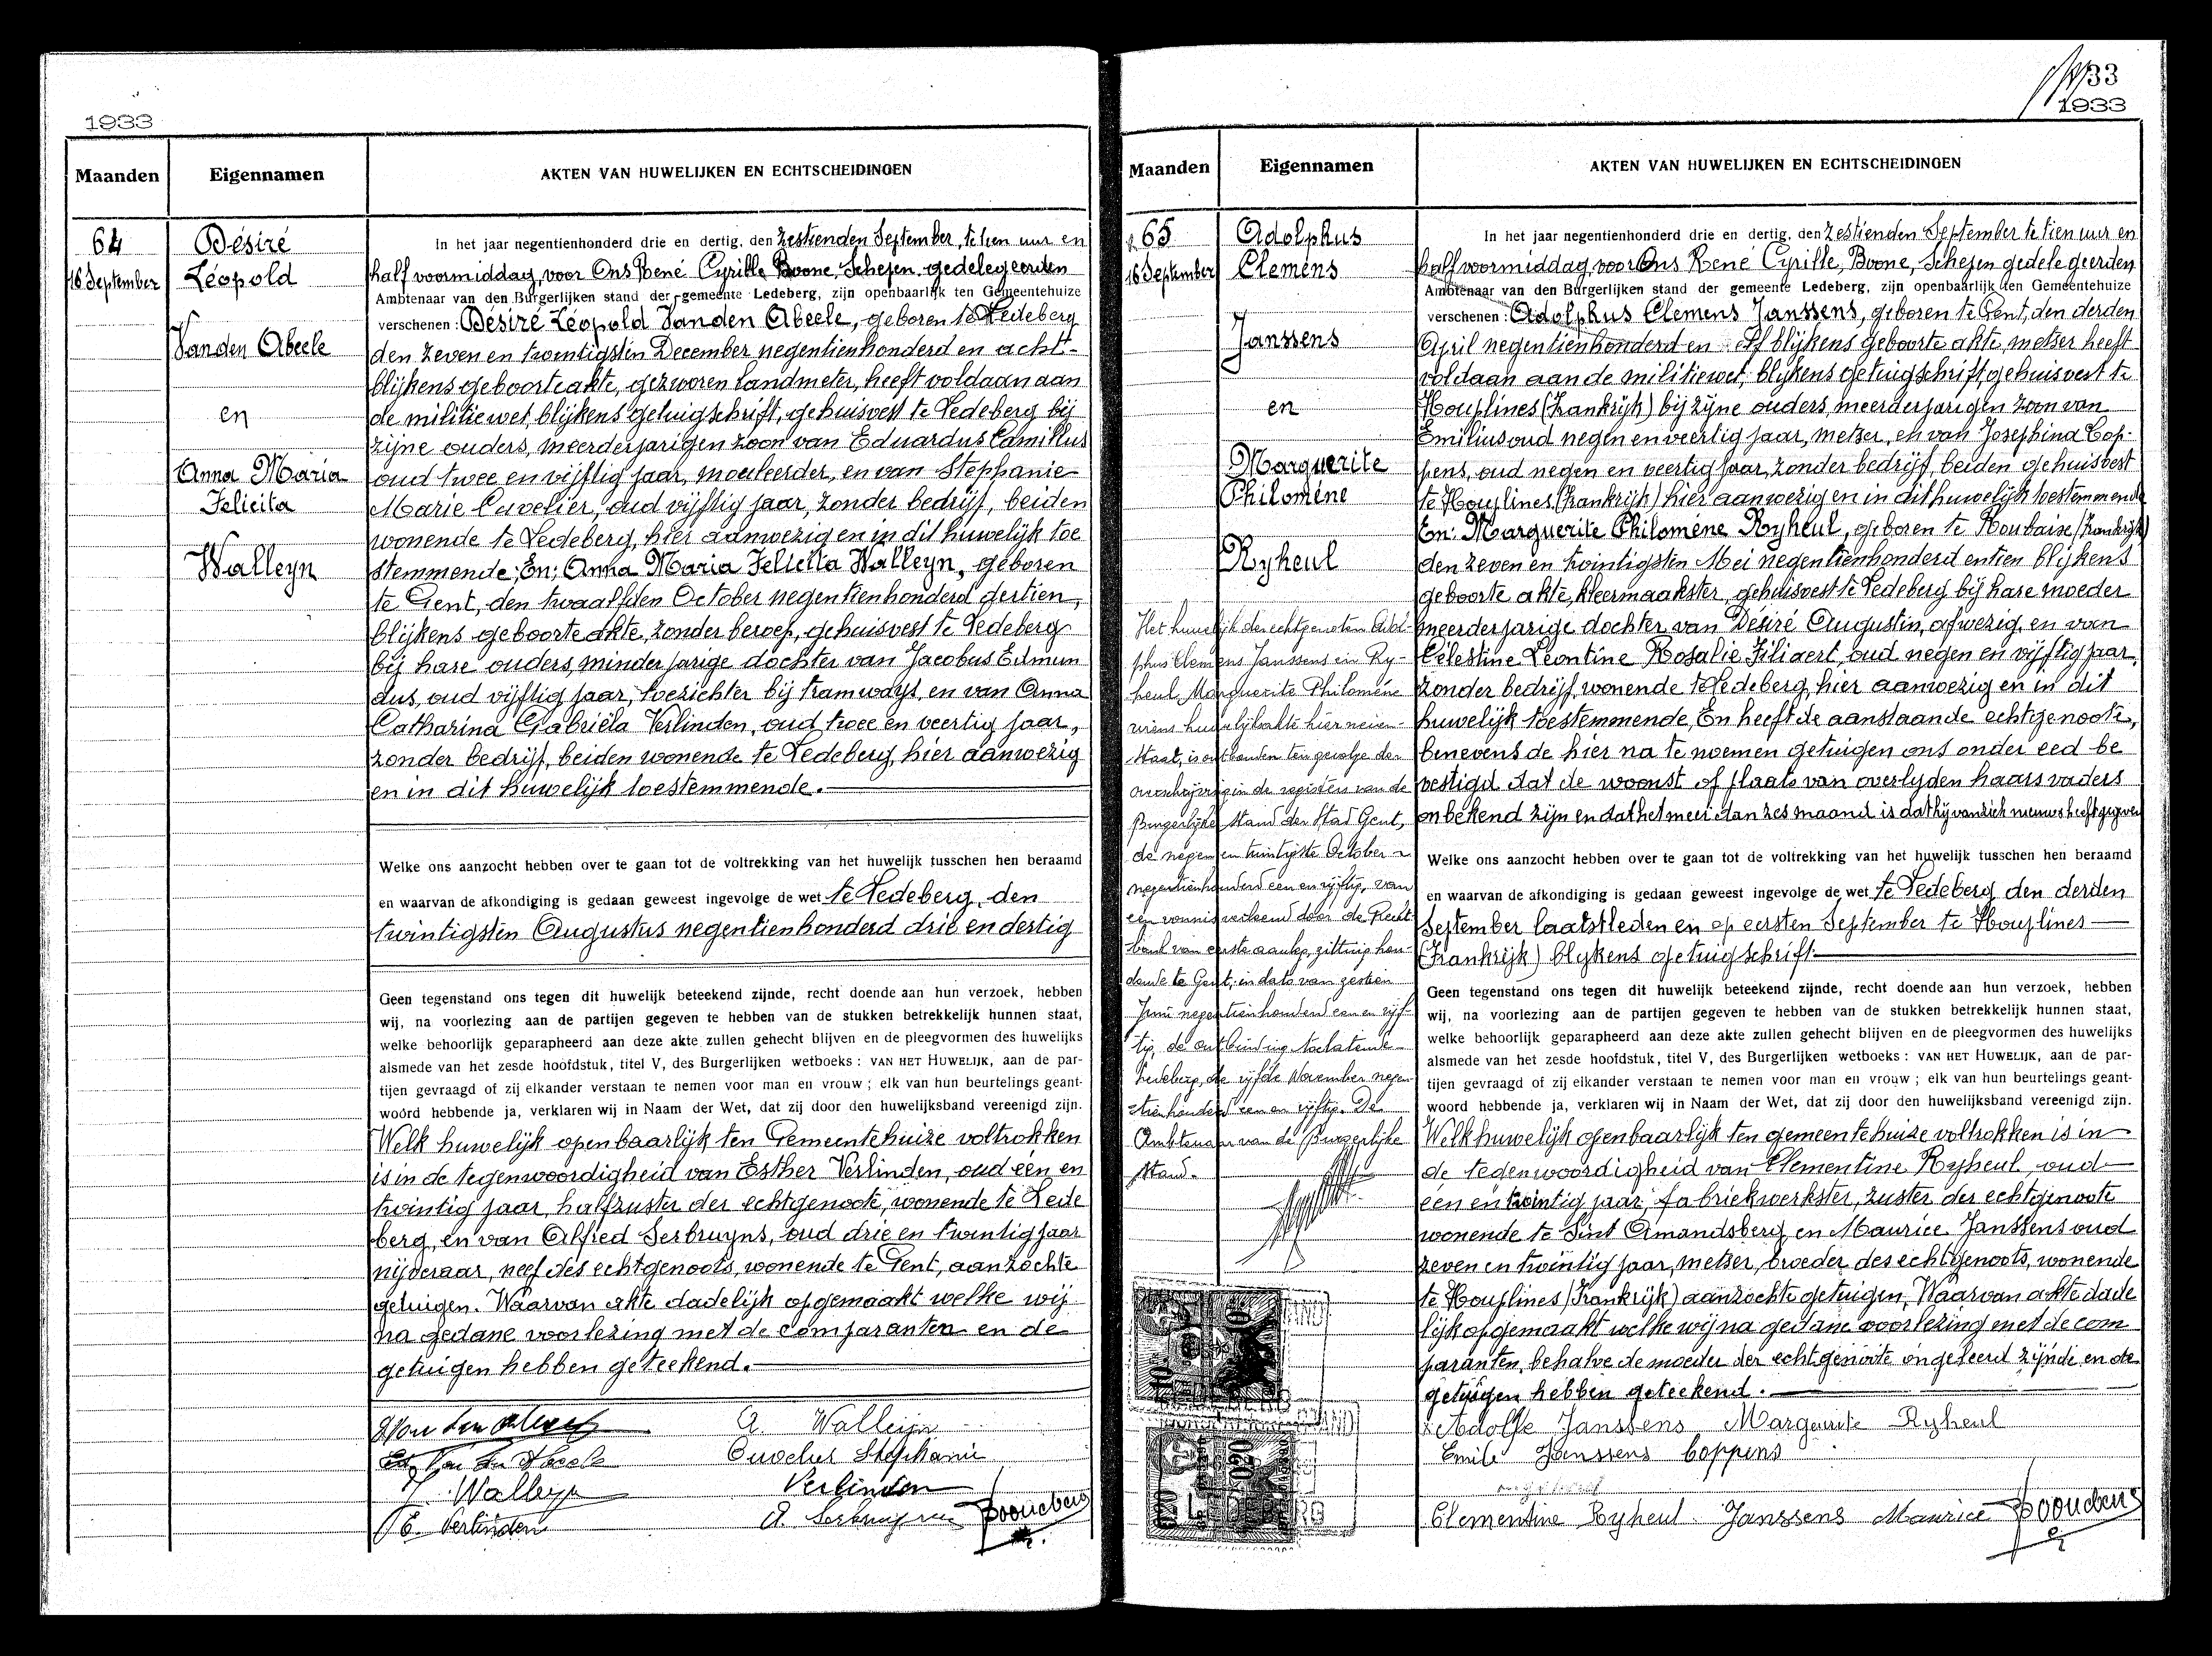 1933
Maanden
Eigennamen
AKTEN VAN HUWELIJKEN EN ECHTSCHEIDINGEN
64
16 September
Désiré
Léopold
Vanden Abeele
en
Anna Maria
Felicita
Walleyn
In het jaar negentienhonderd drie en dertig, den zestienden September, te tien uur en
half voormiddag, voor Ons René Cyrille Boone, Schepen gedelegeerden
Ambtenaar van den Burgerlijken stand der gemeente Ledeberg, zijn openbaarlijk ten Gemeentehuize
verschenen: Désiré Léopold Vanden Abeele, geboren te Ledeberg
den zeven en twintigsten December negentienhonderd en acht-
blijkens geboorteakte, gezworen landmeter, heeft voldaan aan
de militiewet, blijkens getuigschrift, gehuisvest te Ledeberg bij
zijne ouders, meerderjarigen zoon van Eduardus Camillus
oud twee en vijftig jaar, mouleerder, en van Stephanie
Marie Cuvelier, oud vijftig jaar, zonder bedrijf, beiden
wonende te Ledeberg, hier aanwezig en in dit huwelijk toe
stemmende; En: Anna Maria Felicita Walleyn, geboren
te Gent, den twaalfden October negentienhonderd dertien,
blijkens geboorteakte, zonder beroep, gehuisvest te Ledeberg
bij hare ouders, minderjarige dochter van Jacobus Edmun
dus, oud vijftig jaar, toezichter bij tramways, en van Anna
Catharina Gabriela Verlinden, oud twee en veertig jaar,
zonder bedrijf, beiden wonende te Ledeberg, hier aanwezig
en in dit huwelijk toestemmende.
Welke ons aanzocht hebben over te gaan tot de voltrekking van het huwelijk tusschen hen beraamd
en waarvan de afkondiging is gedaan geweest ingevolge de wet te Ledeberg, den
twintigsten Augustus negentienhonderd drie en dertig
Geen tegenstand ons tegen dit huwelijk beteekend zijnde, recht doende aan hun verzoek, hebben
wij, na voorlezing aan de partijen gegeven te hebben van de stukken betrekkelijk hunnen staat,
welke behoorlijk geparapheerd aan deze akte zullen gehecht blijven en de pleegvormen des huwelijks
alsmede van het zesde hoofdstuk, titel V, des Burgerlijken wetboeks : VAN HET HUWELIJK, aan de par-
tijen gevraagd of zij elkander verstaan te nemen voor man en vrouw ; elk van hun beurtelings geant-
woord hebbende ja, verklaren wij in Naam der Wet, dat zij door den huwelijksband vereenigd zijn.
Welk huwelijk openbaarlijk ten Gemeentehuize voltrokken
is in de tegenwoordigheid van Esther Verlinden, oud één en
twintig jaar, halfzuster der echtgenoote, wonende te Lede
berg, en van Alfred Serbruyns, oud drie en twintig jaar
nijveraar, neef des echtgenoots, wonende te Gent, aanzochte
getuigen. Waarvan akte dadelijk opgemaakt welke wij
na gedane voorlezing met de comparanten en de
getuigen hebben geteekend.
A. Walleyn
Cuvelier Stephanie
Walleyn
Verlinden
E. Verlinden
1933
1933
Maanden
Eigennamen
AKTEN VAN HUWELIJKEN EN ECHTSCHEIDINGEN
65
16 September
Adolphus
Clemens
Janssens
en
Marguerite
Philoméne
Ryheul
Het huwelijk der echtgenoten Adol-
phus Clemens Janssens en Ry-
heul, Marguerite Philoméne
wiens huwelijksakte hier neven-
staat, is ontbonden ten gevolge der
overschrijving in de registers van de
Burgerlijke Stand der Stad Gent,
de negen en twintigste October
negentienhonderd een en vijftig, van
een vonnis verleend door de Recht
bank van eerste aanleg, zitting hou-
dende te Gent, in dato van dertien
Juni negentienhonderd een en vijf-
tig, de ontbinding toelatende.
Ledeberg, de vijfde November negen-
tienhonderd een en vijftig. De
Ambtenaar van de Burgerlijke
Stand.
In het jaar negentienhonderd drie en dertig, den zestienden September te tien uur en
half voormiddag, voor Ons René Cyrille, Boone, Schepen gedelegeerden
Ambtenaar van den Burgerlijken stand der gemeente Ledeberg, zijn openbaarlijk ten Gemeentehuize
verschenen: Adolphus Clemens Janssens, geboren te Gent, den derden
April negentienhonderd en elf blijkens geboorte akte, metser heeft
voldaan aan de militiewet, blijkens getuigschrift, gehuisvest te
Houplines (Frankrijk) bij zijne ouders, meerderjarigen zoon van
Emilius oud negen en veertig jaar, metser, en van Josephina Cop-
pens, oud negen en veertig jaar, zonder bedrijf, beiden gehuisvest
te Houplines (Frankrijk) hier aanwezig en in dit huwelijk toestemmende
En: Marguerite Philoméne Ryheul, geboren te Roubaise (Frankrijk)
den zeven en twintigsten Mei negentienhonderd en tien blijkens
geboorte akte, kleermaakster, gehuisvest te Ledeberg bij hare moeder
meerderjarige dochter van Désiré Augustin, afwezig, en van
Célestine Léontine Rosalie Filiaert, oud negen en vijftig jaar,
zonder bedrijf, wonende te Ledeberg, hier aanwezig en in dit
huwelijk toestemmende, En heeft de aanstaande echtgenoote,
benevens de hier na te noemen getuigen ons onder eed be
vestigd dat de woonst of plaats van overlyden haars vaders
onbekend zijn en dat het meer dan zes maand is dat hij van zich nieuws heeft gegeven
Welke ons aanzocht hebben over te gaan tot de voltrekking van het huwelijk tusschen hen beraamd
en waarvan de afkondiging is gedaan geweest ingevolge de wet te Ledeberg den derden
September laatstleden en op eersten September te Houplines
(Frankrijk) blykens getuigschrift.
Geen tegenstand ons tegen dit huwelijk beteekend zijnde, recht doende aan hun verzoek, hebben
wij, na voorlezing aan de partijen gegeven te hebben van de stukken betrekkelijk hunnen staat,
welke behoorlijk geparapheerd aan deze akte zullen gehecht blijven en de pleegvormen des huwelijks
alsmede van het zesde hoofdstuk, titel V, des Burgerlijken wetboeks : VAN HET HUWELIJK, aan de par-
tijen gevraagd of zij elkander verstaan te nemen voor man en vrouw ; elk van hun beurtelings geant-
woord hebbende ja, verklaren wij in Naam der Wet, dat zij door den huwelijksband vereenigd zijn.
Welk huwelijk openbaarlijk ten gemeentehuize voltrokken is in
de tegenwoordigheid van Clementine Ryheul, oud
een en twintig jaar, fabriekwerkster, zuster der echtgenoote
wonende te Sint Amandsberg en Maurice Janssens oud
zeven en twintig jaar, metser, broeder des echtgenoots, wonende
te Houplines (Frankrijk) aanzochte getuigen, Waarvan akte dade
lijk opgemaakt welke wij na gedane voorlezing met de com
paranten, behalve de moeder der echtgenoote ongeleerd zijnde en de
getuigen hebben geteekend.
Adolfe Janssens Marguerite Ryheul
Emile Janssens Coppens
Clementine Ryheul Janssens Maurice